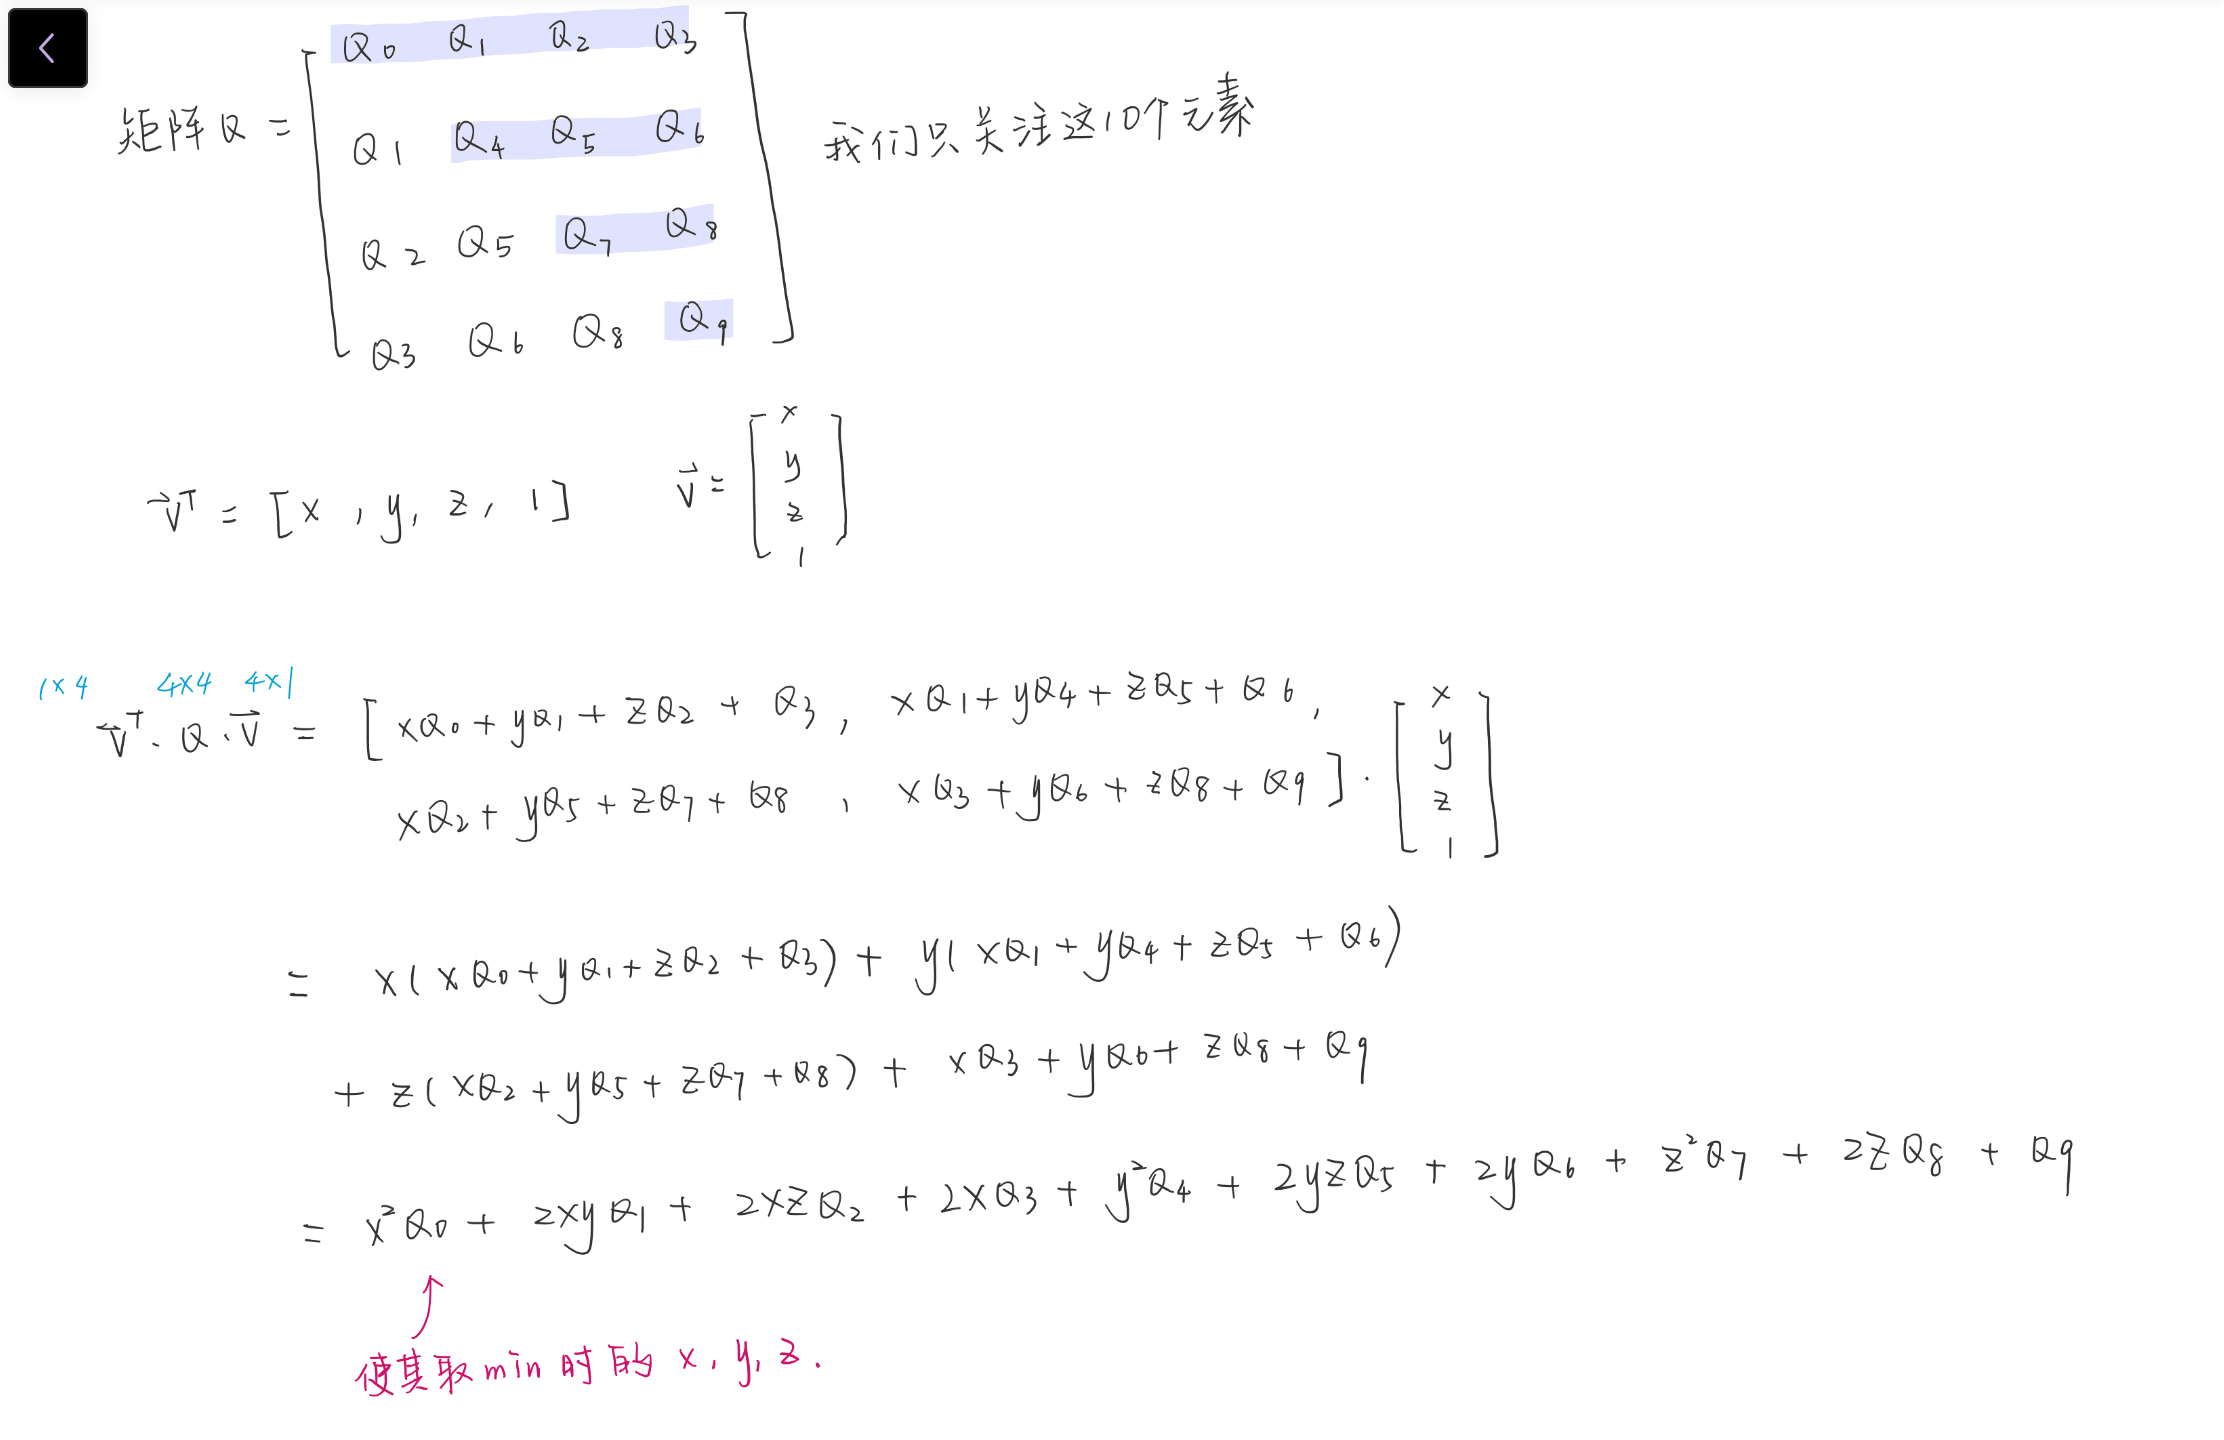 Q0 Q1 Q2 Q3
矩阵Q = Q1 Q4 Q5 Q6 我们只关注这10个元素
Q2 Q5 Q7 Q8
Q3 Q6 Q8 Q9
v⃗ᵀ = [x, y, z, 1] v⃗ = [x y z 1]
1×4 4×4 4×1
v⃗ᵀ · Q · v⃗ = [xQ0 + yQ1 + zQ2 + Q3, xQ1 + yQ4 + zQ5 + Q6,
xQ2 + yQ5 + zQ7 + Q8, xQ3 + yQ6 + zQ8 + Q9] · [x y z 1]
= x(xQ0 + yQ1 + zQ2 + Q3) + y(xQ1 + yQ4 + zQ5 + Q6)
+ z(xQ2 + yQ5 + zQ7 + Q8) + xQ3 + yQ6 + zQ8 + Q9
= x²Q0 + 2xyQ1 + 2xzQ2 + 2xQ3 + y²Q4 + 2yzQ5 + 2yQ6 + z²Q7 + 2zQ8 + Q9
使其取min时的 x, y, z.